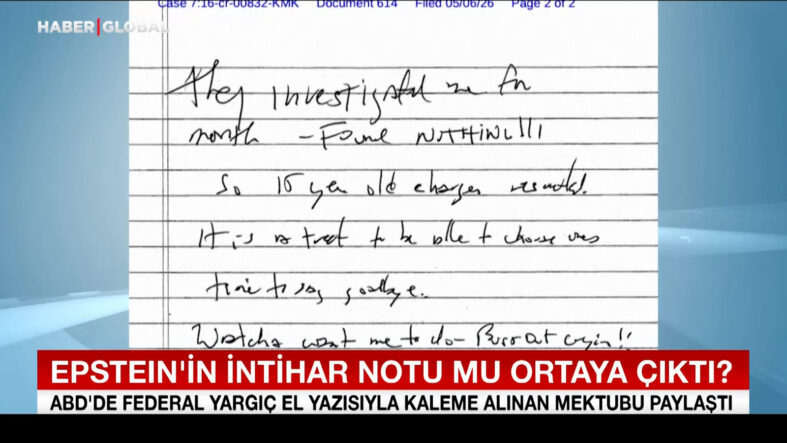 Case 7:16-cr-00832-KMK Document 614 Filed 05/06/26 Page 2 of 2
HABER GLOBAL
They investigated me for
month - Found NOTHING!!!
So 15 year old charges
It is a treat to be able to choose
time to say goodbye.
Watcha want me to do - Burst out cryin!!
EPSTEIN'IN İNTİHAR NOTU MU ORTAYA ÇIKTI?
ABD'DE FEDERAL YARGIÇ EL YAZISIYLA KALEME ALINAN MEKTUBU PAYLAŞTI